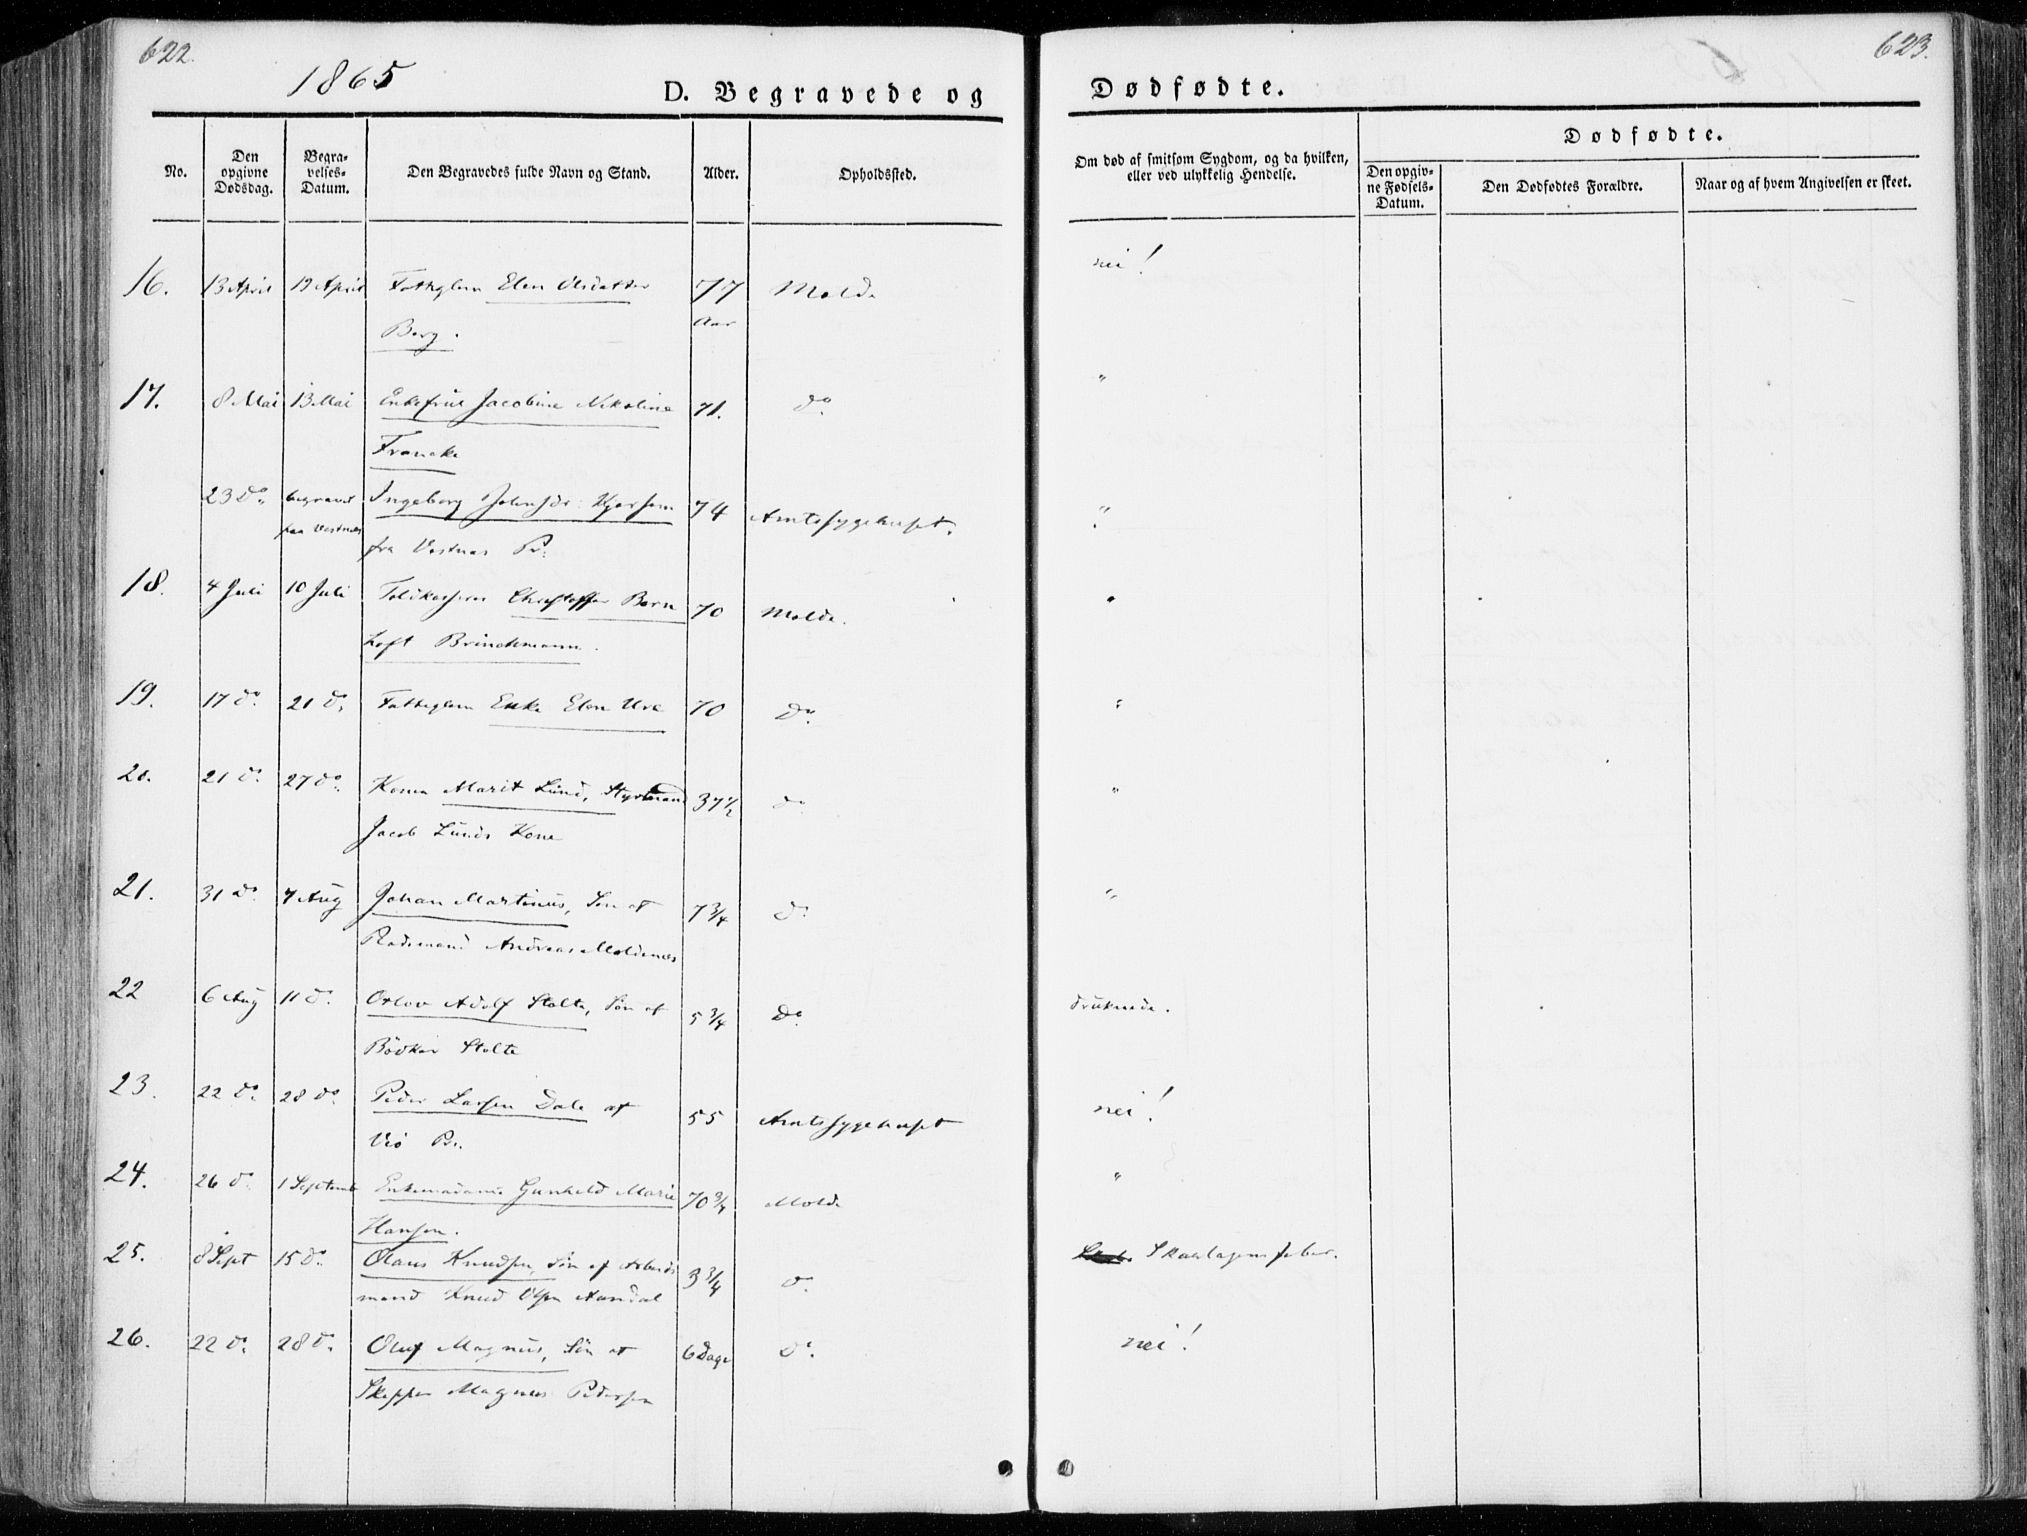 622.
1865
D. Begravede og
No.
Den opgivne Dødsdag.
Begravelses-Datum.
Den Begravedes fulde Navn og Stand.
Alder.
Opholdssted.
16. 13 April 19 April Fattiglem Elen Olsdatter 77 Molde
Berg. Aar
17. 8 Mai 13 Mai Enkefrue Jacobine Nikoline 71. do
Francke
23 do begravet Ingeborg Johnsdr: 74 Amtssygehuset.
paa Vestnæs fra Vestnæs Pr:
18. 4 Juli 10 Juli Toldkasserer Christoffer Bern 70 Molde.
hoft Brinchmann.
19. 17 do 21 do Fattiglem Enke Elen Ure 70 do
20. 21 do 27 do Konen Marit Lund, Styrmand 37 1/2 do
Jacob Lunds Kone
21. 31 do 7 Aug Johan Martinus, Søn af 7 3/4 do
Andreas Moldenæs
22 6 Aug 11 do Orlov Adolf Stolte, Søn af 5 3/4 do
Bödker Stolte
23. 22 do 28 do Peder Larsen Dale af 55 Amtssygehuset
Veö Pr.
24. 26 do 1 Septemb Enkemadame Gunhild Marie 70 3/4 Molde
Hansen.
25. 8 Sept 15 do Olaus Knudsen, Søn af Arbeids 3 3/4 do
mand Knud Olsen Aandal
26. 22 do 28 do Oluf Magnus, Søn af 6 Dage do
Skipper Magnus Pedersen
623.
Dødfødte.
Om død af smitsom Sygdom, og da hvilken,
eller ved ulykkelig Hendelse.
Dødfødte.
Den opgivne Fødsels-Datum.
Den Dødfødtes Forældre.
Naar og af hvem Angivelsen er skeet.
nei!
"
"
"
"
"
"
druknede.
nei!
"
Skarlagensfeber.
nei!